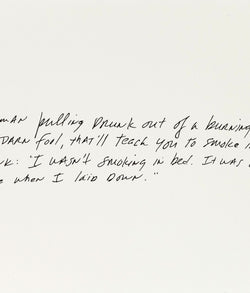 man pulling Drunk out of a burning
Darn fool, that'll teach you to smoke
"I wasn't smoking in bed. It was
when I laid down."